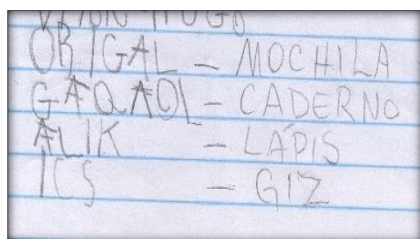 ORIGAL - MOCHILA
GAQAOL - CADERNO
ALIK - LÁPIS
ICS - GIZ